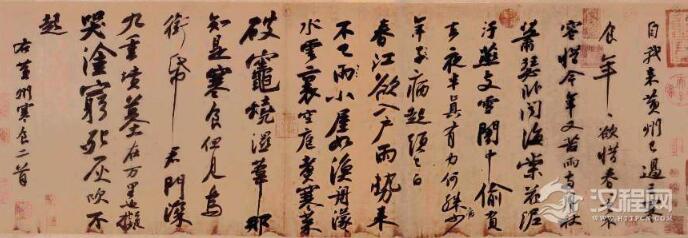 自我來黃州已過三
食年〻欲惜春〻去不
容惜今年又苦雨兩月秋
蕭瑟臥聞海棠花泥
汙燕支雪闇中偷負
去夜半真有力何殊少
年子病起頭已白
春江欲入戶雨勢來
不已雨小屋如漁舟濛〻
水雲裏空庖煮寒菜
破竈燒溼葦那
知是寒食但見烏
銜帋君門深
九重墳墓在万里也擬
哭塗窮死灰吹不
起
右黃州寒食二首
汉程网
HTTPCN.COM